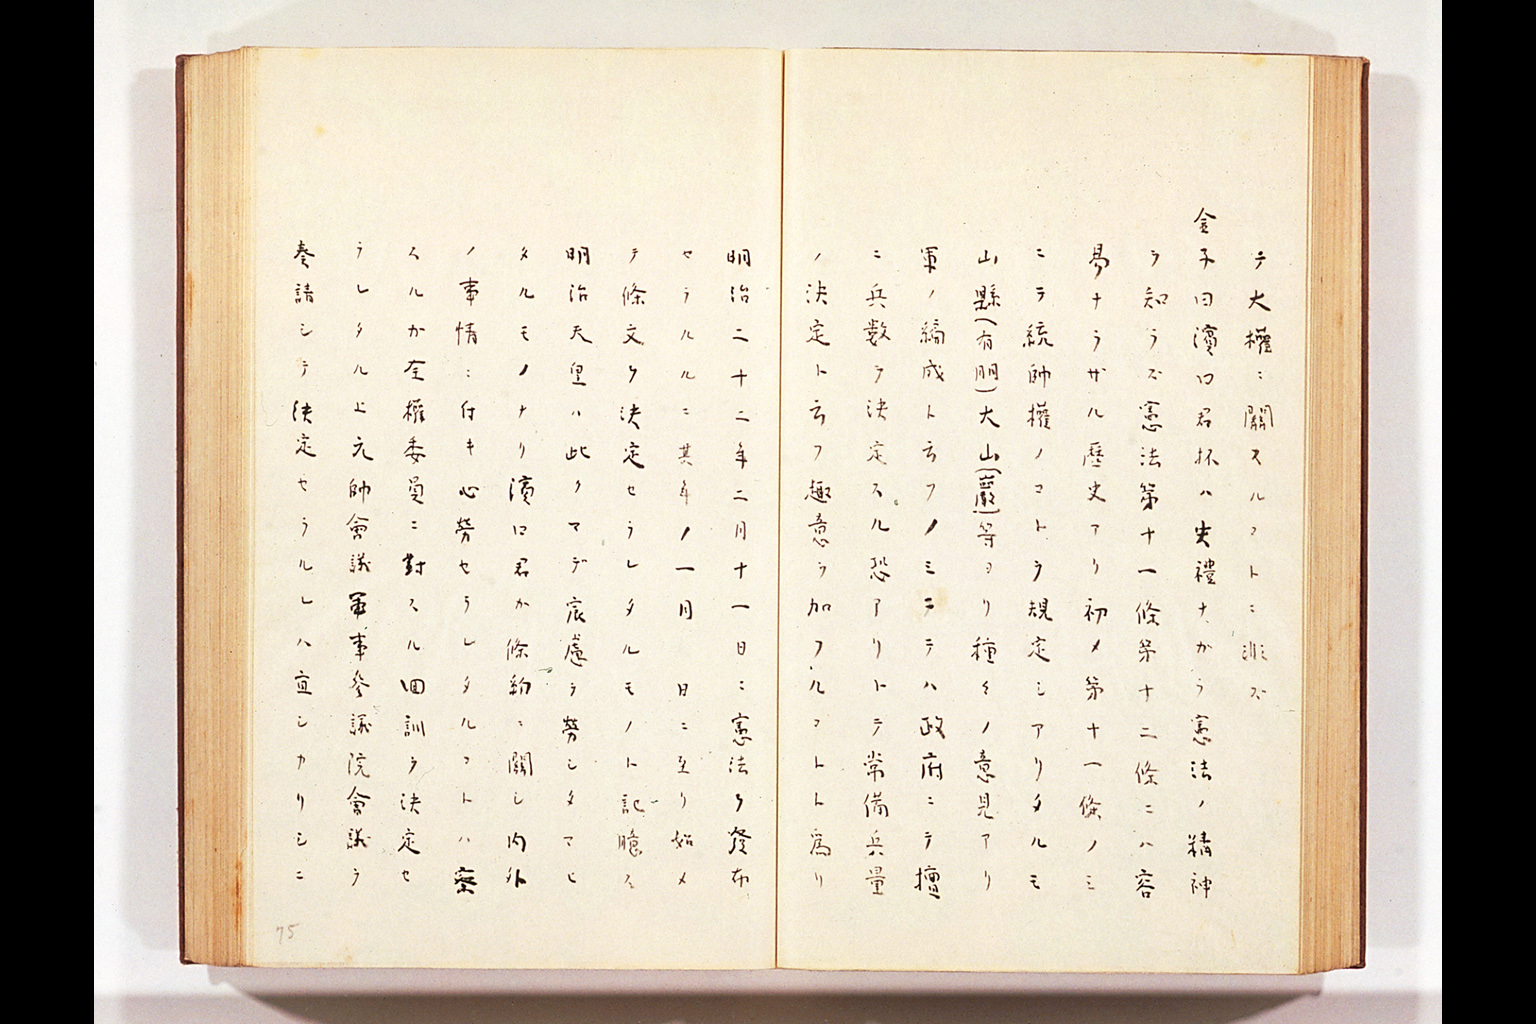 テ大權ニ關スルコトニ非ズ
金子曰濱口君杯ハ失禮ナガラ憲法ノ精神
ヲ知ラズ憲法第十一條第十二條ニハ容
易ナラザル歴史アリ初メ第十一條ノミ
ニテ統帥權ノコトヲ規定シアリタルモ
山縣(有朋)大山(巖)等ヨリ種々ノ意見アリ
軍ノ編成ト云フノミニテハ政府ニテ擅
ニ兵数ヲ決定スル恐アリトテ常備兵量
ノ決定ト云フ趣意ヲ加フルコトト爲リ
明治二十二年二月十一日ニ憲法ヲ發布
セラルルニ其年ノ一月 日ニ至リ始メ
テ條文ヲ決定セラレタルモノト記臆ス
明治天皇ハ此クマデ宸慮ヲ勞シタマヒ
タルモノナリ濱口君カ條約ニ關シ内外
ノ事情ニ付キ心勞セラレタルコトハ察
スルカ全權委員ニ對スル回訓ヲ決定セ
ラレタル上元帥會議軍事參議院會議ヲ
奏請シテ決定セラルレハ宜シカリシニ
75